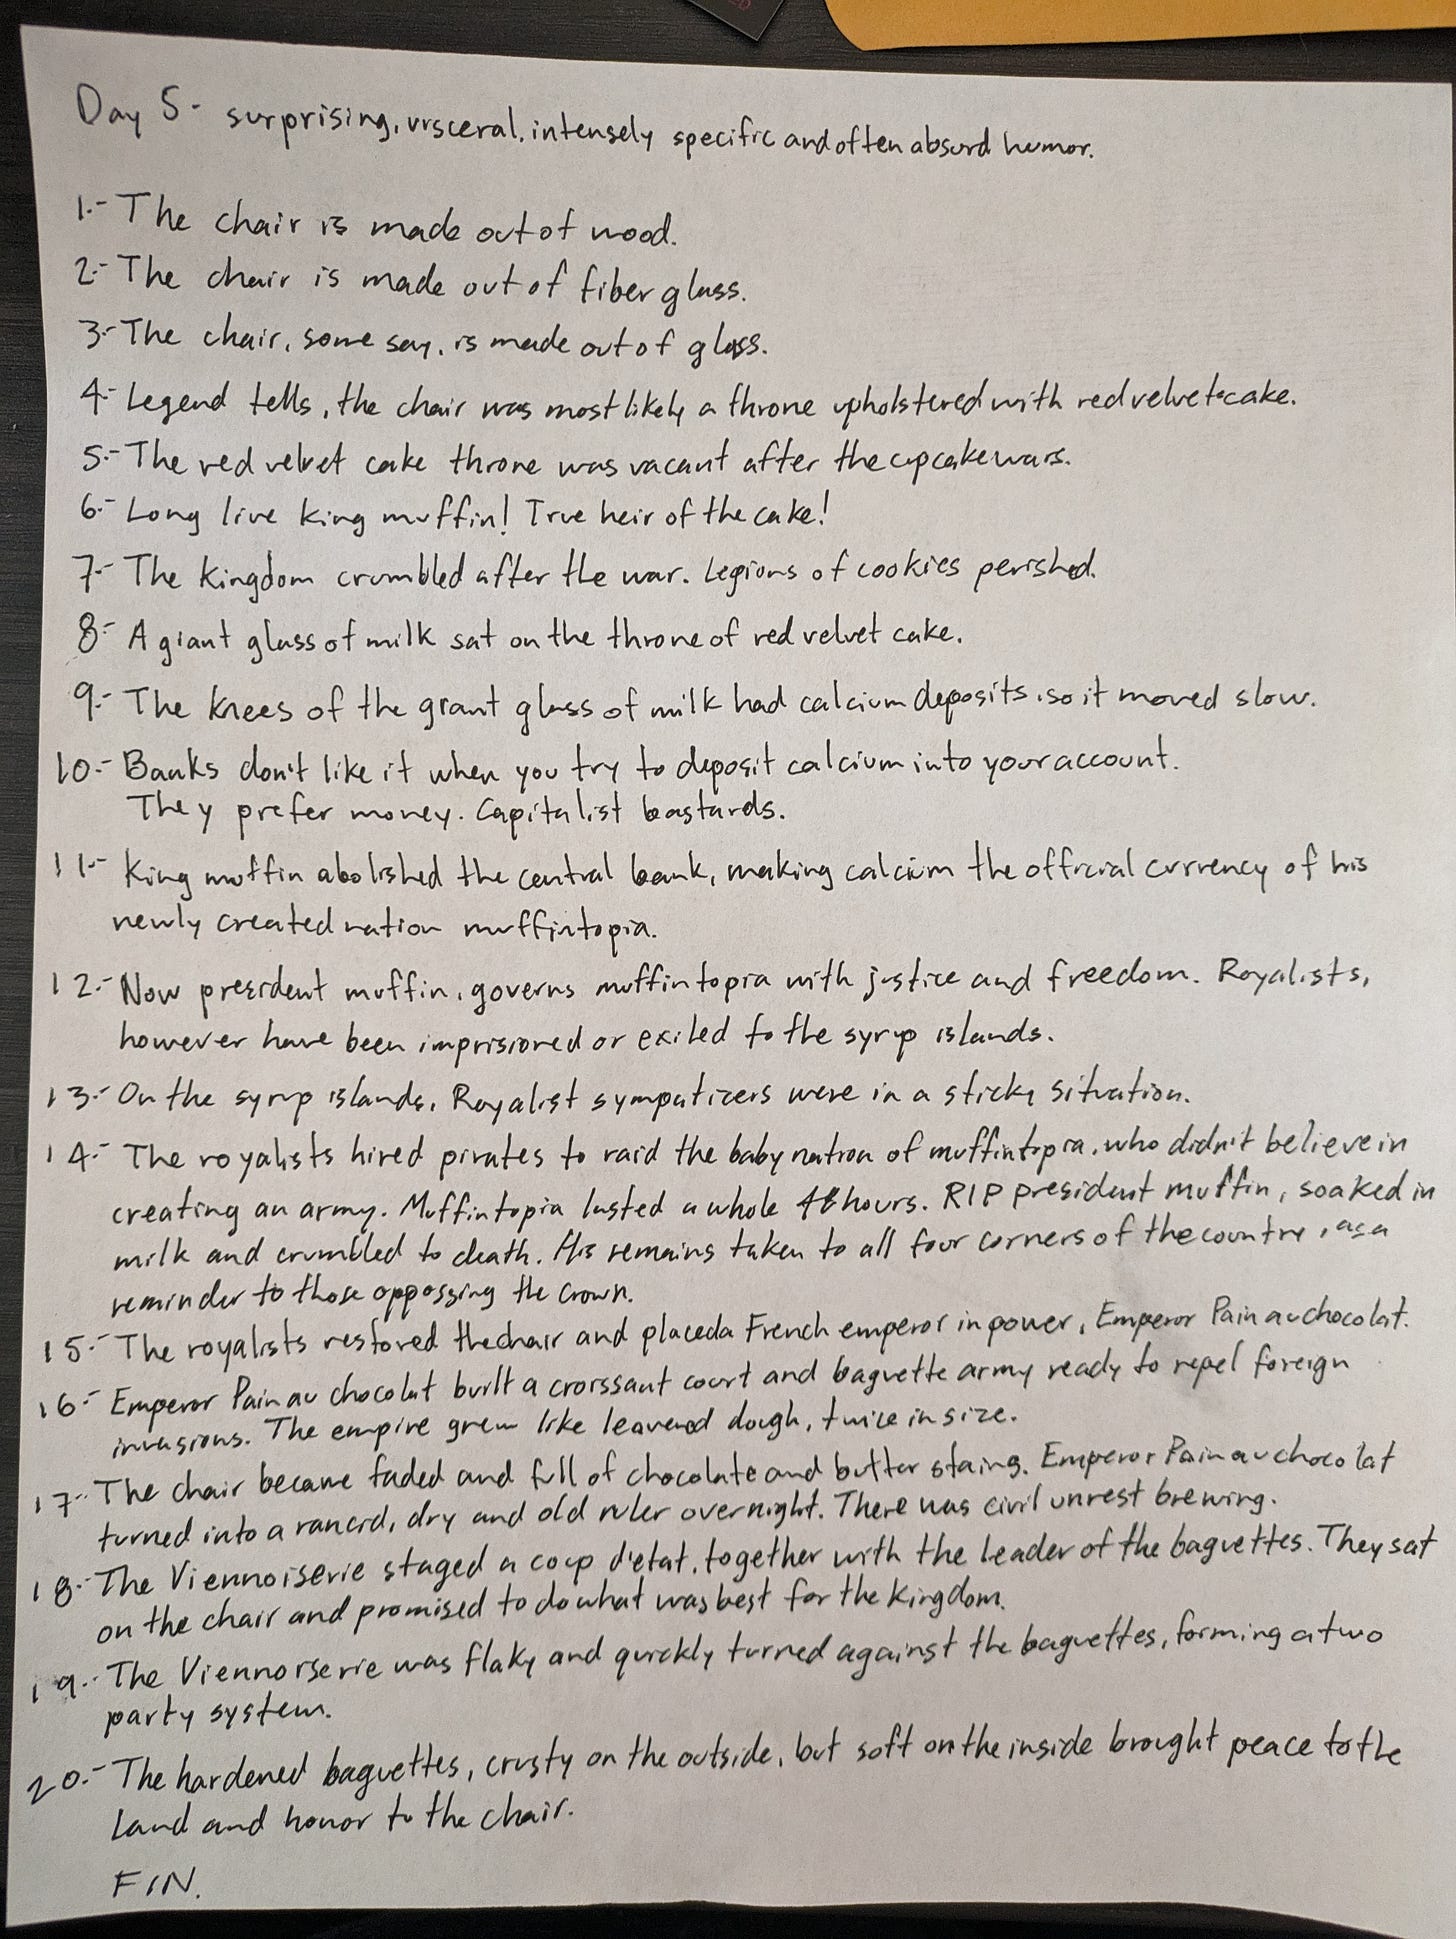 Day 5- surprising, visceral, intensely specific and often absurd humor.
1.- The chair is made out of wood.
2.- The chair is made out of fiber glass.
3.- The chair, some say, is made out of glass.
4.- Legend tells, the chair was most likely a throne upholstered with red velvet cake.
5.- The red velvet cake throne was vacant after the cupcake wars.
6.- Long live king muffin! True heir of the cake!
7.- The kingdom crumbled after the war. Legions of cookies perished.
8.- A giant glass of milk sat on the throne of red velvet cake.
9.- The knees of the giant glass of milk had calcium deposits, so it moved slow.
10.- Banks don't like it when you try to deposit calcium into your account.
They prefer money. Capitalist bastards.
11.- King muffin abolished the central bank, making calcium the official currency of his
newly created nation muffintopia.
12.- Now president muffin, governs muffintopia with justice and freedom. Royalists,
however have been imprisioned or exiled to the syrup islands.
13.- On the syrup islands, Royalist sympatizers were in a sticky situation.
14.- The royalists hired pirates to raid the baby nation of muffintopia, who didn't believe in
creating an army. Muffintopia lasted a whole 48 hours. RIP president muffin, soaked in
milk and crumbled to death. His remains taken to all four corners of the country, as a
reminder to those oppossing the crown.
15.- The royalists restored the chair and placed a French emperor in power, Emperor Pain au chocolat.
16.- Emperor Pain au chocolat built a croissant court and baguette army ready to repel foreign
invasions. The empire grew like leavened dough, twice in size.
17.- The chair became faded and full of chocolate and butter stains. Emperor Pain au chocolat
turned into a rancid, dry and old ruler overnight. There was civil unrest brewing.
18.- The Viennoiserie staged a coup d'etat, together with the leader of the baguettes. They sat
on the chair and promised to do what was best for the kingdom.
19.- The Viennoiserie was flaky and quickly turned against the baguettes, forming a two
party system.
20.- The hardened baguettes, crusty on the outside, but soft on the inside brought peace to the
land and honor to the chair.
FIN.